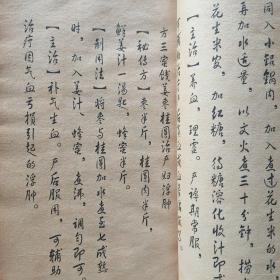 同入小铝锅内，加入煮过花生米的水
再加水适量，以文火煮三十分钟，捞
花生米衣，加红糖，待糖溶化收汁即成
【主治】养血，理虚。产褥期常服，
方三 枣饯姜蜜桂圆治产妇浮肿
【秘传方】枣半斤，桂圆肉半斤，
鲜姜汁一汤匙，蜂蜜半斤。
【制用法】将枣与桂圆加水煮至七成熟
时，加入姜汁、蜂蜜，煮沸，调匀即可。
【主治】补气生血。产后服用，可辅助
治疗因气血亏损引起的浮肿。